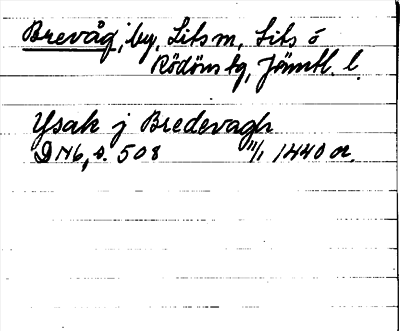 Brevåg, by, Lits sn, Lits o
Rödöns tg, Jämtl. l.
Ysak j Bredevagh
DN6, s. 508 11/1 1440 or.